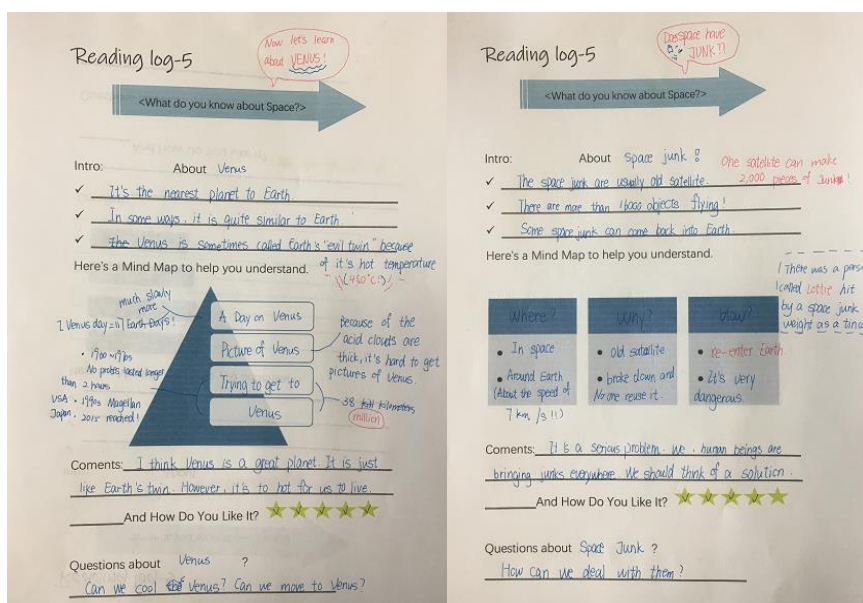 Reading log-5
Now let's learn
about VENUS!
<What do you know about Space?>
Intro: About Venus
✓ It's the nearest planet to Earth
✓ In some ways, it is quite similar to Earth
✓ the Venus is sometimes called Earth's "evil twin" because
of it's hot temperature
Here's a Mind Map to help you understand.
(460°C!)
much slowly
more
1 Venus day = 117 Earth Days!
A Day on Venus
Picture of Venus
Trying to get to
Venus
because of the
acid clouds are
thick, it's hard to get
pictures of Venus.
No probes lasted longer
than 2 hours
USA • 1990s Magellan
Japan • 2015 reached!
38 kilometers
million
Coments: I think Venus is a great planet. It is just
like Earth's twin. However, it's to hot for us to live.
And How Do You Like It?
Questions about Venus ?
Can we cool Venus? Can we move to Venus?
Reading log-5
Does space have
JUNK?!
<What do you know about Space?>
Intro: About Space junk!
One satellite can make
2,000 pieces of Junk!
✓ The space junk are usually old satellite.
✓ There are more than 16000 objects flying!
✓ Some space junk can come back into Earth.
Here's a Mind Map to help you understand.
! There was a
called Lottie hit
by a space junk
weight as a
where?
• In space
• Around Earth
(About the speed of
7 km/s!!)
why?
• old satellite
• broke down and
No one reuse it.
• re-enter Earth.
• It's very
dangerous.
Coments: It is a serious problem. We, human beings are
bringing junks everywhere. We should think of a solution.
And How Do You Like It?
Questions about Space Junk ?
How can we deal with them?